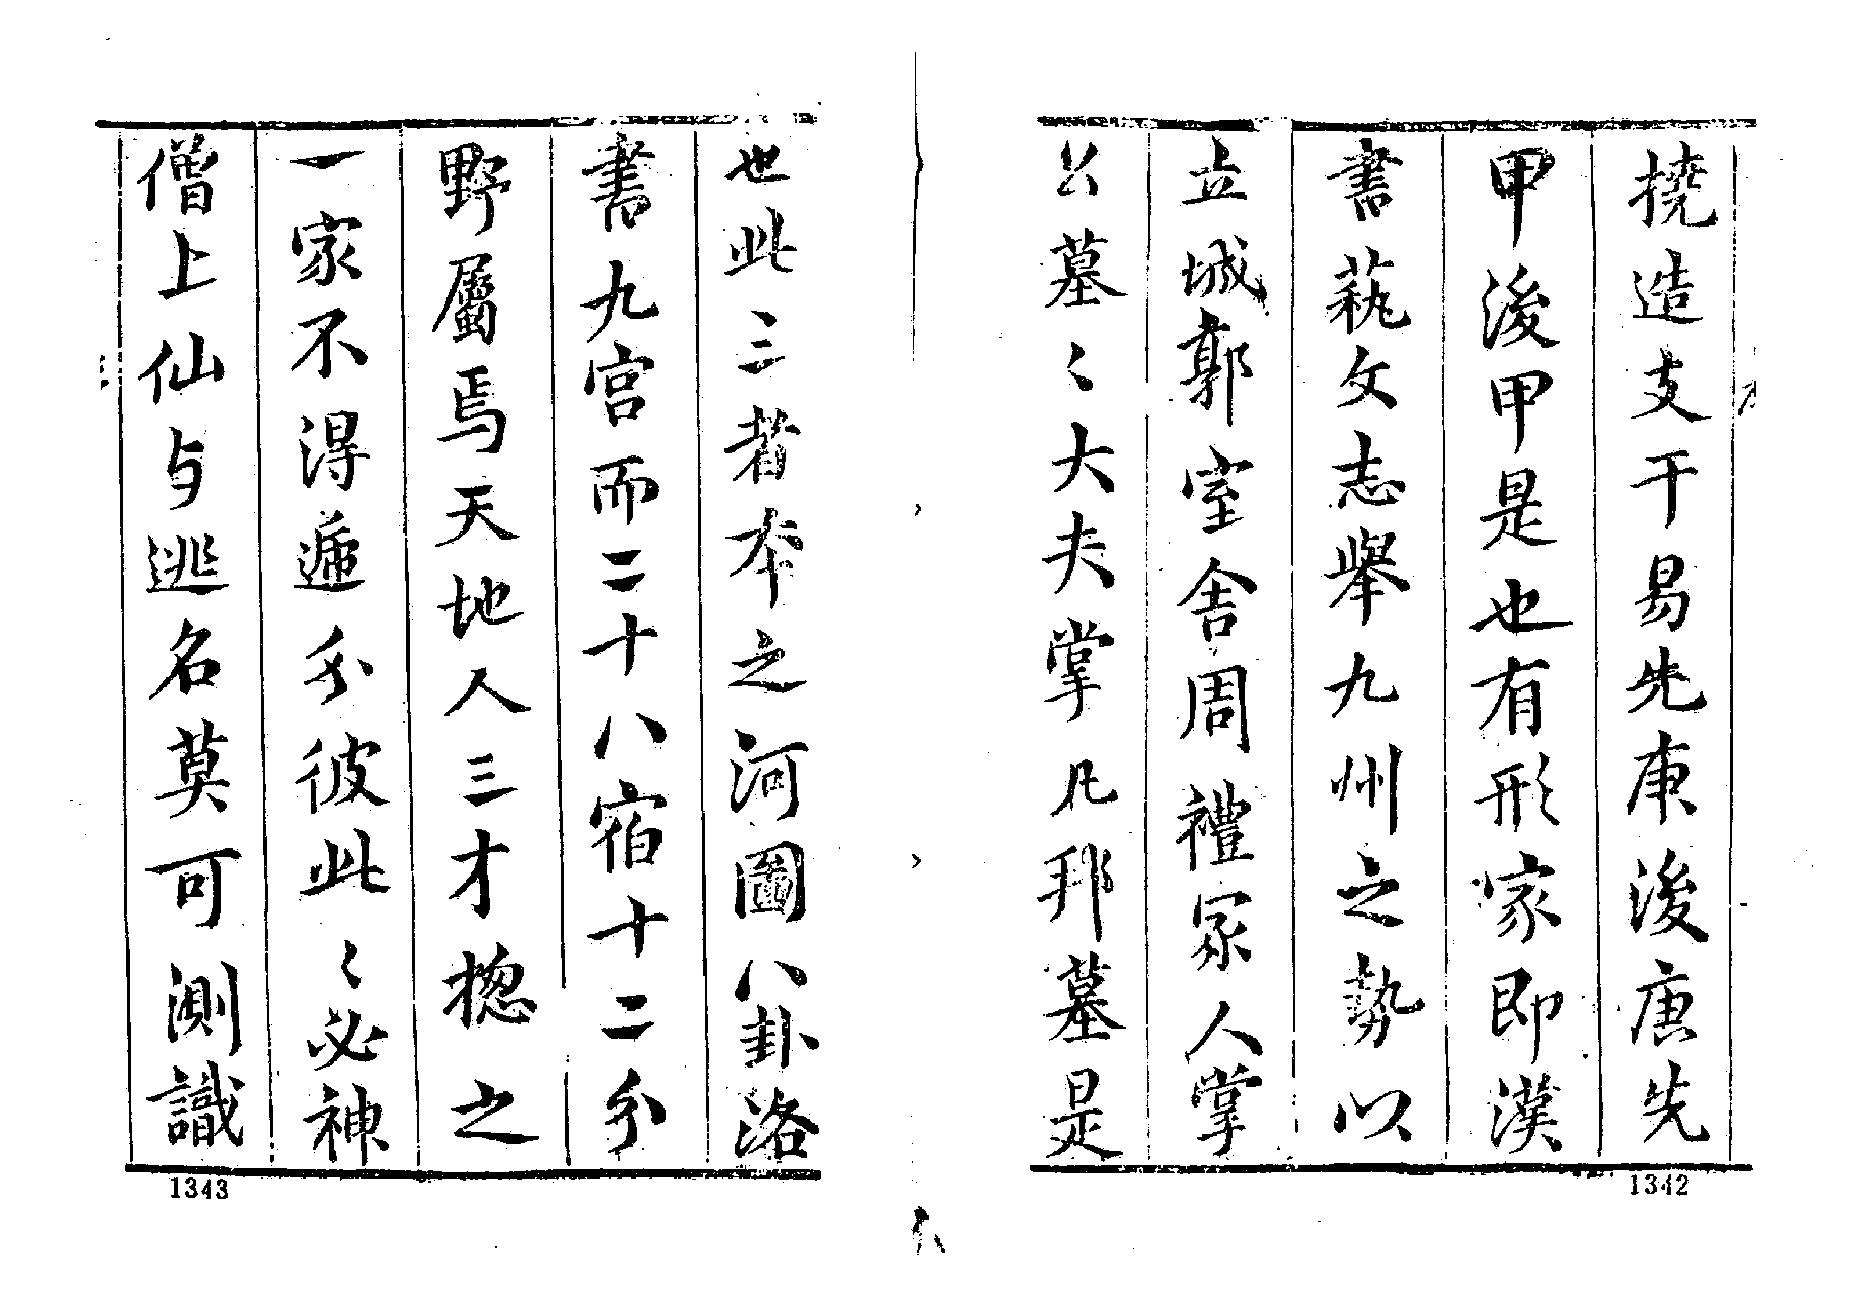 撓造支干易先庚後庚先
甲後甲是也有形家即漢
書藝文志舉九州之勢以
立城郭室舍周禮冢人掌
公墓〻大夫掌凡邦墓是
1342
也此〻三者本之河圖八卦洛
書九宮而二十八宿十二分
野屬焉天地人三才摠之
一家不得遞分彼此〻必神
僧上仙与逃名莫可測識
1343